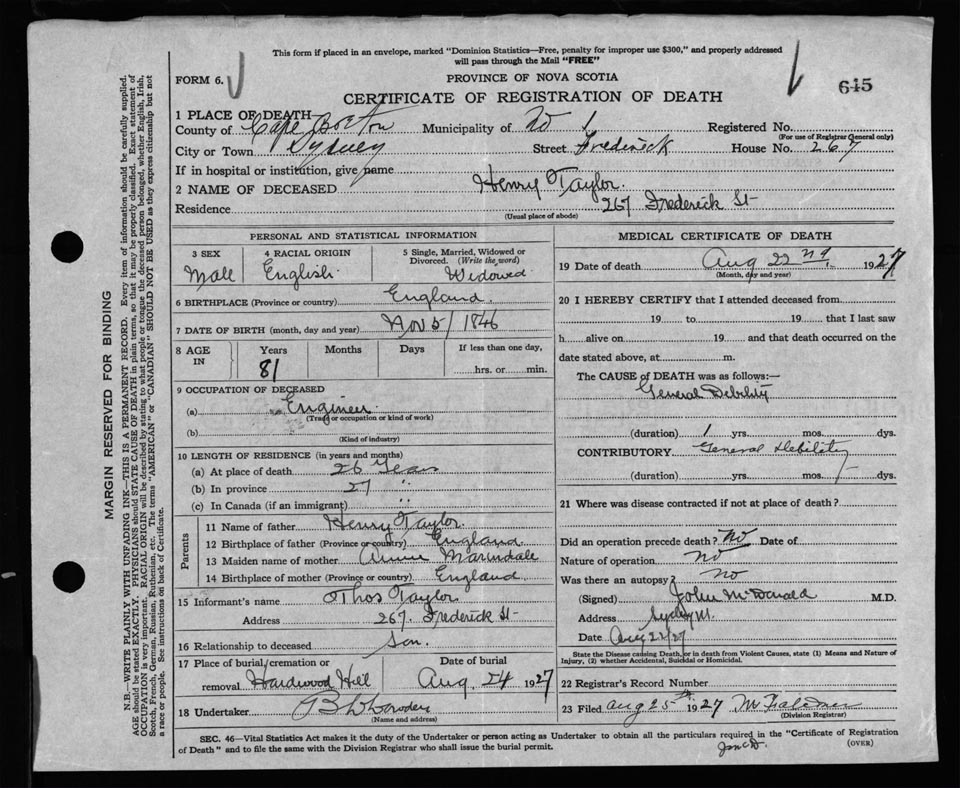 This form if placed in an envelope, marked "Dominion Statistics—Free, penalty for improper use $300," and properly addressed
will pass through the Mail "FREE"
FORM 6.
PROVINCE OF NOVA SCOTIA
645
CERTIFICATE OF REGISTRATION OF DEATH
1 PLACE OF DEATH
County of Cape Breton Municipality of No 1 Registered No.
(For use of Registrar General only)
City or Town Sydney Street Frederick House No. 267
If in hospital or institution, give name
2 NAME OF DECEASED Henry Taylor.
Residence 267 Frederick St
(Usual place of abode)
PERSONAL AND STATISTICAL INFORMATION
3 SEX
Male
4 RACIAL ORIGIN
English.
5 Single, Married, Widowed or
Divorced. (Write the word)
Widowed
6 BIRTHPLACE (Province or country) England.
7 DATE OF BIRTH (month, day and year) Nov 5/1846
8 AGE IN
Years Months Days If less than one day,
81 hrs. or min.
9 OCCUPATION OF DECEASED
(a) Engineer
(Trade or occupation or kind of work)
(b)
(Kind of industry)
10 LENGTH OF RESIDENCE (in years and months)
(a) At place of death 26 Years
(b) In province 27 "
(c) In Canada (if an immigrant) "
Parents
11 Name of father Henry Taylor.
12 Birthplace of father (Province or country) England.
13 Maiden name of mother Annie Marindale
14 Birthplace of mother (Province or country) England
15 Informant's name Thos Taylor
Address 267. Frederick St
16 Relationship to deceased Son.
17 Place of burial, cremation or Date of burial
removal Hardwood Hill Aug. 24 1927
18 Undertaker
(Name and address)
MEDICAL CERTIFICATE OF DEATH
19 Date of death Aug 22nd, 1927
(Month, day and year)
20 I HEREBY CERTIFY that I attended deceased from
19 to 19 that I last saw
h alive on 19 and that death occurred on the
date stated above, at m.
The CAUSE OF DEATH was as follows:—
General Debility
(duration) 1 yrs. mos. dys.
CONTRIBUTORY General Debility
(duration) yrs. mos. dys.
21 Where was disease contracted if not at place of death?
Did an operation precede death? No Date of
Nature of operation no
Was there an autopsy? no
(Signed) John McDonald M.D.
Address Sydney
Date Aug 22/27
State the Disease causing Death, or in death from Violent Causes, state (1) Means and Nature of
Injury, (2) whether Accidental, Suicidal or Homicidal.
22 Registrar's Record Number
23 Filed Aug 25th 1927
(Division Registrar)
SEC. 46—Vital Statistics Act makes it the duty of the Undertaker or person acting as Undertaker to obtain all the particulars required in the "Certificate of Registration
of Death" and to file the same with the Division Registrar who shall issue the burial permit.
(OVER)
MARGIN RESERVED FOR BINDING
N.B.—WRITE PLAINLY WITH UNFADING INK—THIS IS A PERMANENT RECORD. Every item of information should be carefully supplied.
AGE should be stated EXACTLY. PHYSICIANS should STATE CAUSE OF DEATH in plain terms, so that it may be properly classified. Exact statement of
OCCUPATION is very important. RACIAL ORIGIN will be described by stating to what people or tongue the deceased person belonged, whether English, Irish,
Scotch, French, German, Russian, Ruthenian, etc. The terms "AMERICAN" or "CANADIAN" SHOULD NOT BE USED as they express citizenship but not
a race or people. See instructions on back of Certificate.